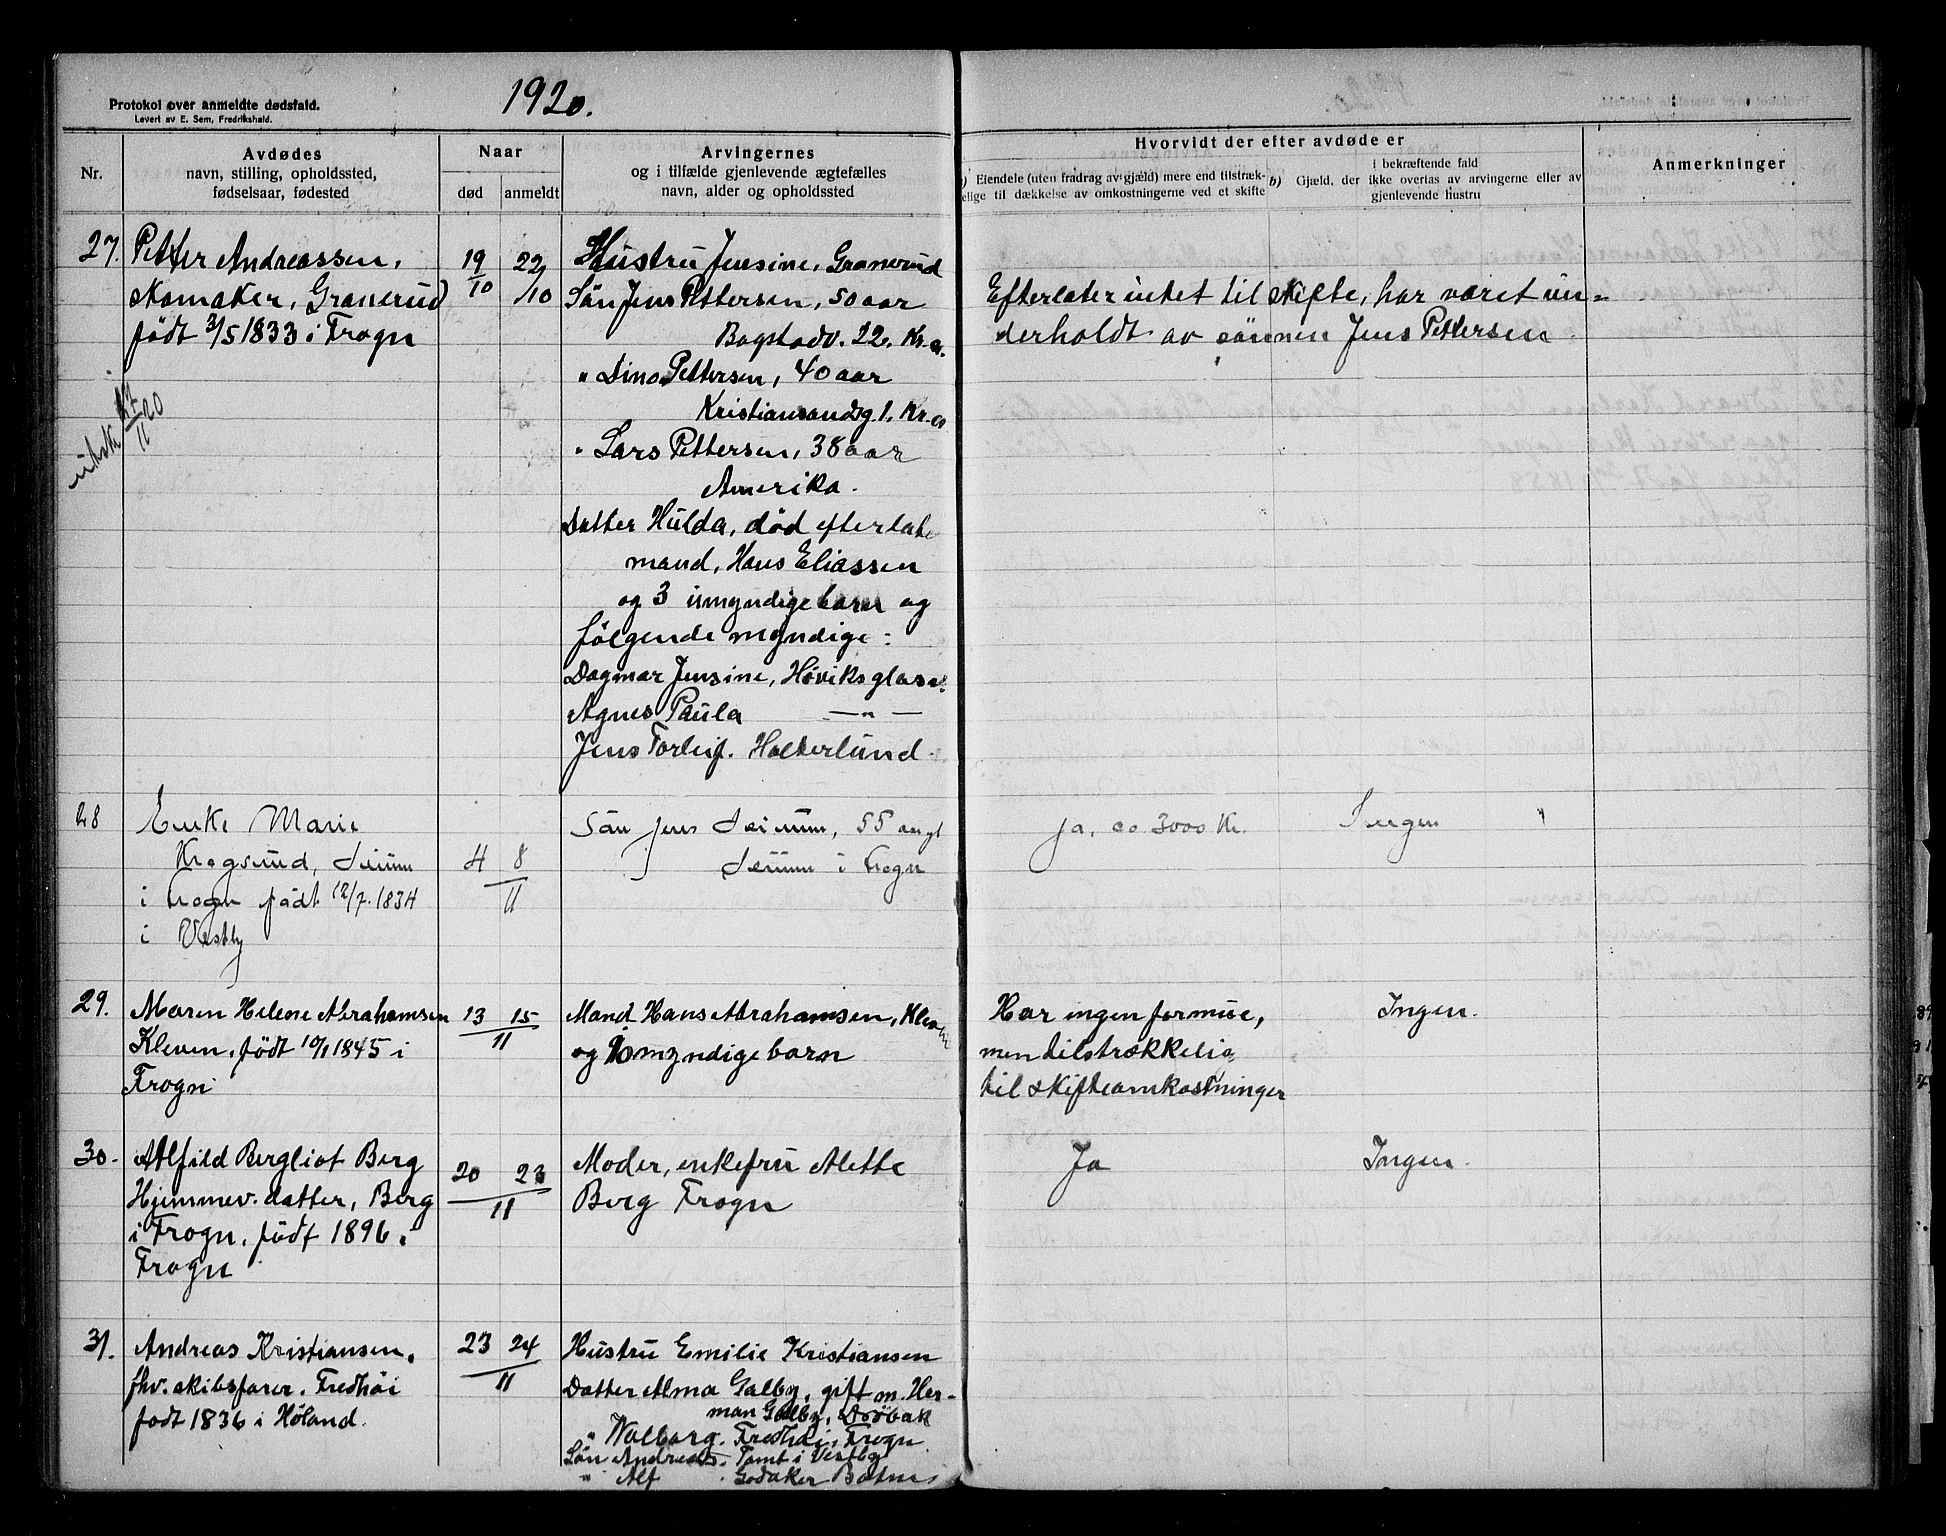 Protokol over anmeldte dødsfald.
Levert av E. Sem, Fredrikshald.
1920.
Nr.
Avdødes
navn, stilling, opholdssted,
fødselsaar, fødested
Naar
død
anmeldt
Arvingernes
og i tilfælde gjenlevende ægtefælles
navn, alder og opholdssted
Hvorvidt der efter avdøde er
a) Eiendele (uten fradrag av gjæld) mere end tilstræk-
kelige til dækkelse av omkostningerne ved et skifte
i bekræftende fald
b) Gjæld, der ikke overtas av arvingerne eller av
gjenlevende hustru
Anmerkninger
27.
Petter Andreassen,
skomaker, Granerud
født 3/5 1833 i Frogn
19/10
22/10
Hustru Jensine, Granerud
Sön Jens Pettersen, 50 aar
Bogstadv. 22. Kr.a.
" Dina Pettersen, 40 aar
Kristiansandsg. 1. Kr.a
" Lars Pettersen, 38 aar
Amerika.
Datter Hulda, död efterlate
mand, Hans Eliassen
og 3 umyndige barn og
fölgende myndige:
Dagmar Jensine, Høviks glasv.
Agnes Paula — " —
Jens Torleif. Holterlund.
Efterlater intet til skifte, har været un=
derholdt av sönnen Jens Pettersen
utsk 27/11 20
28
Enke Marie
Krogsrud,
i Frogn födt 12/7. 1834
i Vestby
4 8
11
Sön Jens 55 aar gl
i Frogn
Ja, ca 3000 Kr.
Ingen
29.
Maren Helene Abrahamsen
Kleven, födt 10/1 1845 i
Frogn
13 15
11
Mand Hans Abrahamsen, Kleven
og 10 myndige barn
Har ingen formue,
men tilstrækkelig
til skifteomkostninger
Ingen.
30.
Alfild Bergliot Berg
Hjemmev. datter, Berg
i Frogn, född 1896 i
Frogn
20 23
11
Moder, enkefru Alette
Berg Frogn
Ja
Ingen.
31.
Andreas Kristiansen,
fhv. skibsfører. Fredhöi
fodt 1836 i Høland.
23 24
11
Hustru Emilie Kristiansen
Datter Alma Galby, gift m. Her-
man Galby, Dröbak
" Valborg. Fredhöi, Frogn
Sön Andreas, Tomt i Vestby
" Alf